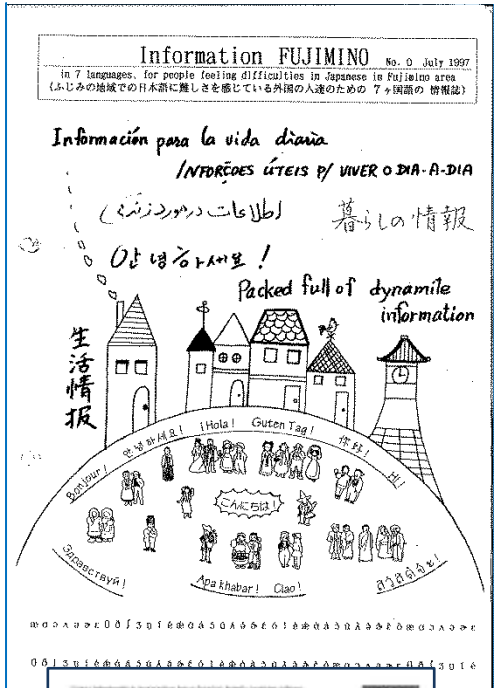 Information FUJIMINO No. 0 July 1997
in 7 languages, for people feeling difficulties in Japanese in Fujimino area
(ふじみの地域での日本語に難しさを感じている外国の人達のための 7ヶ国語の 情報誌)
Información para la vida diaria
INFORÇÕES ÚTEIS P/ VIVER O DIA-A-DIA
اطلاعات در مورد زندگی
暮らしの情報
안녕하세요!
Packed full of dynamile
information
生活情报
Bonjour! 안녕하세요! ¡Hola! Guten Tag! 你好! Hi!
こんにちは!
Здравствуй! Apa khabar! Ciao! สวัสดีค่ะ!